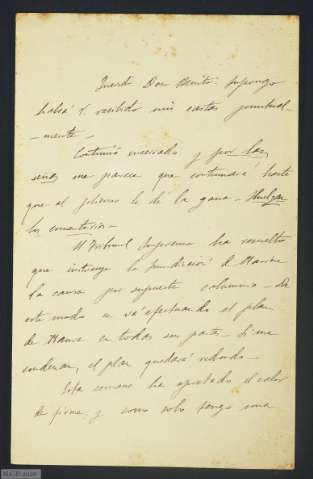 Querido Don Benito: Supongo
habrá V. recibido mis cartas puntual-
-mente -
Continúo encerrado y por las
señas me parece que continuaré hasta
que al gobierno le dé la gana - Huelgan
los comentarios -
El Tribunal Supremo ha resuelto
que instruya la Jurisdicción de Marina
la causa por supuesta calumnia - De
este modo se va efectuando el plan
de Maura en todas sus partes - Si me
condenan, el plan quedará redondo -
Esta semana ha apretado el calor
de firme, y como solo tengo una